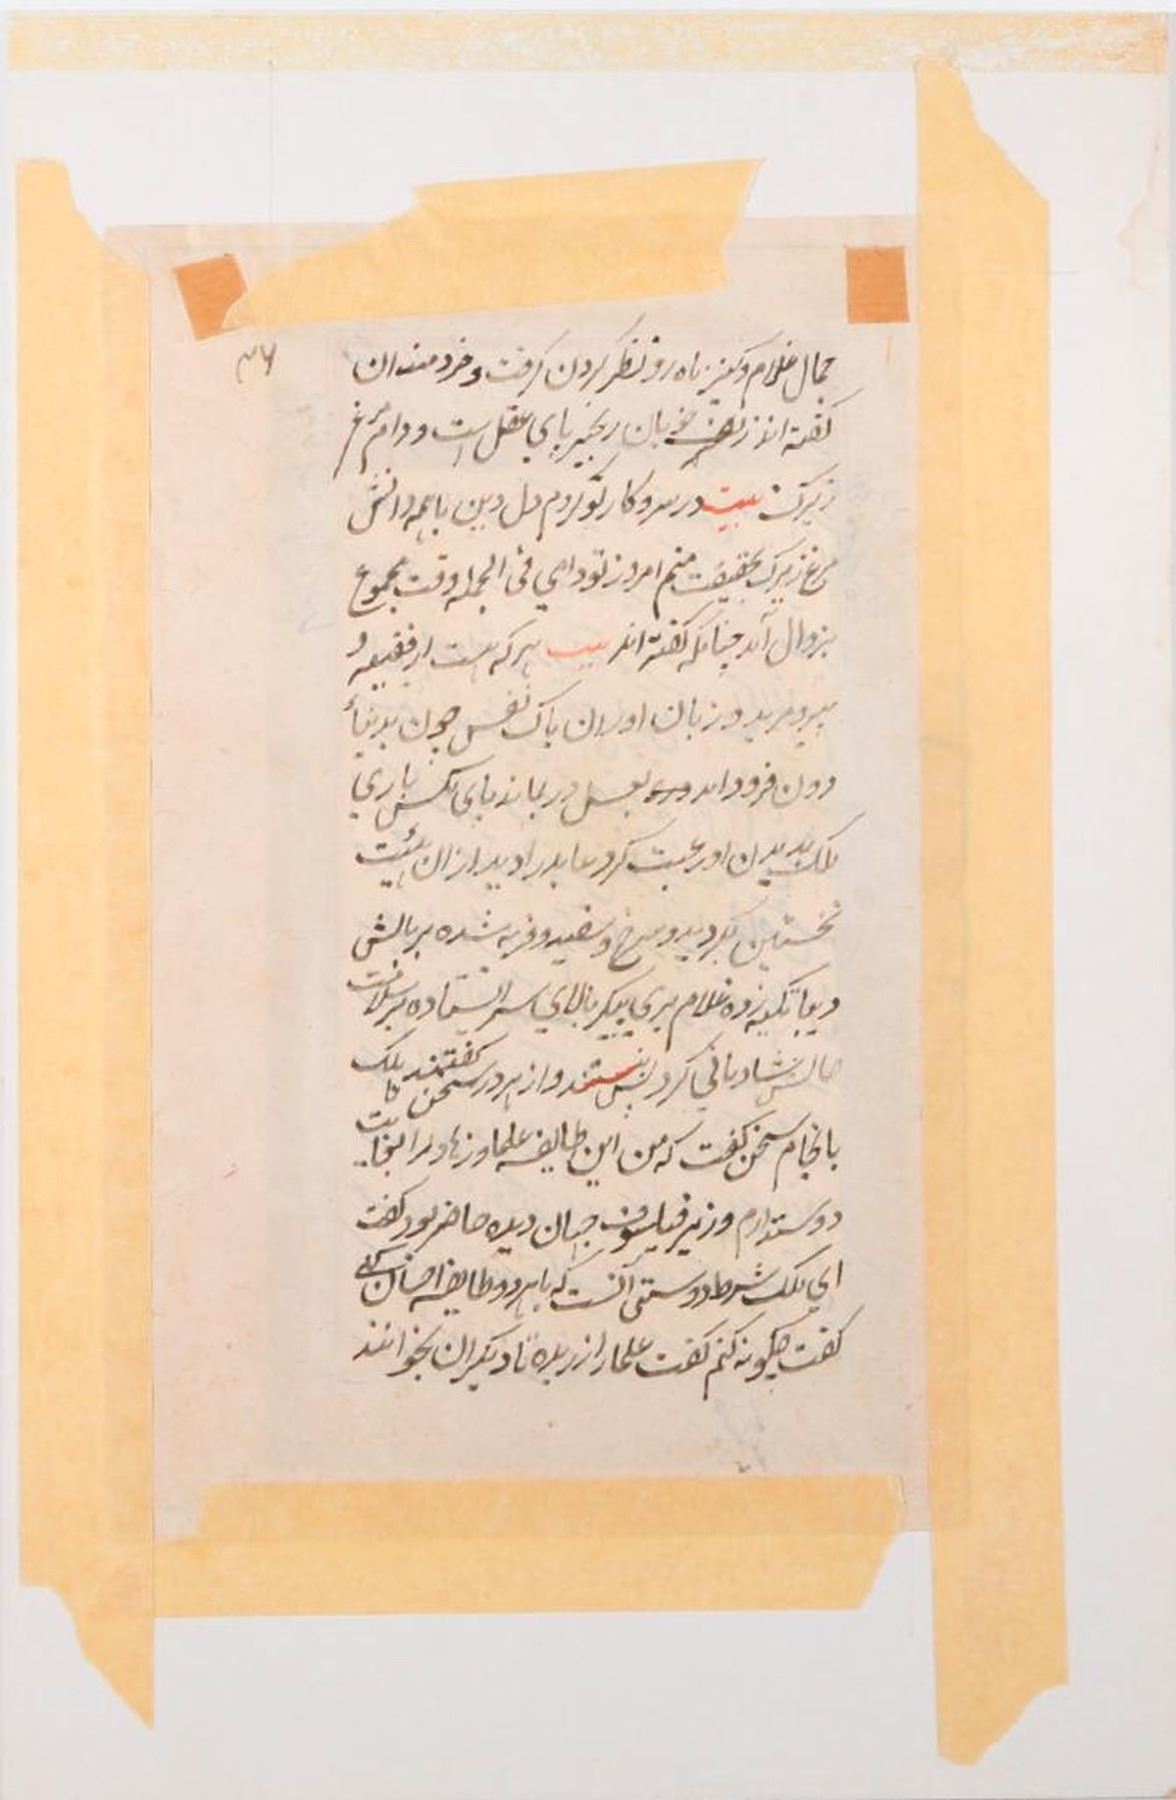 ۳۶
جمال غلام و کنیز ماه رو نظر کردن گرفت و خردمندان
گفته اند زلف خوبان زنجیر پای عقل است و دام مرغ
زیرک بیت در سر و کار تو کردم دل و دین با همه دانش
مرغ زیرک بحقیقت منم امروز تو دامی فی الجمله وقت مجموع
بزوال آمد چنانکه گفته اند بیت هر که هست از فقیه و
پیر و مرید و زبان اوران پاک نفس چون بدنیاء
دون فرود امد بعسل در بماند پای مگس باری
ملک بدیدن او رغبت کرد عابد را دید از ان هیئت
نخستین بگردیده و سرخ و سفید و فربه شده بر بالش
دیبا تکیه زده غلام پری پیکر بالای سر ایستاده بر سلامت
حالش شادمانی کرد بنشستند و از هر در سخن گفتند تا ملک
بانجام سخن گفت که من این طایفه علما و زهاد را بغایت
دوست دارم وزیر فیلسوف جهان دیده حاضر بود گفت
ای ملک شرط دوستی آنست که با هر دو طایفه احسان کنی
گفت چگونه کنم گفت علما را زر بده تا دیگران بخوانند